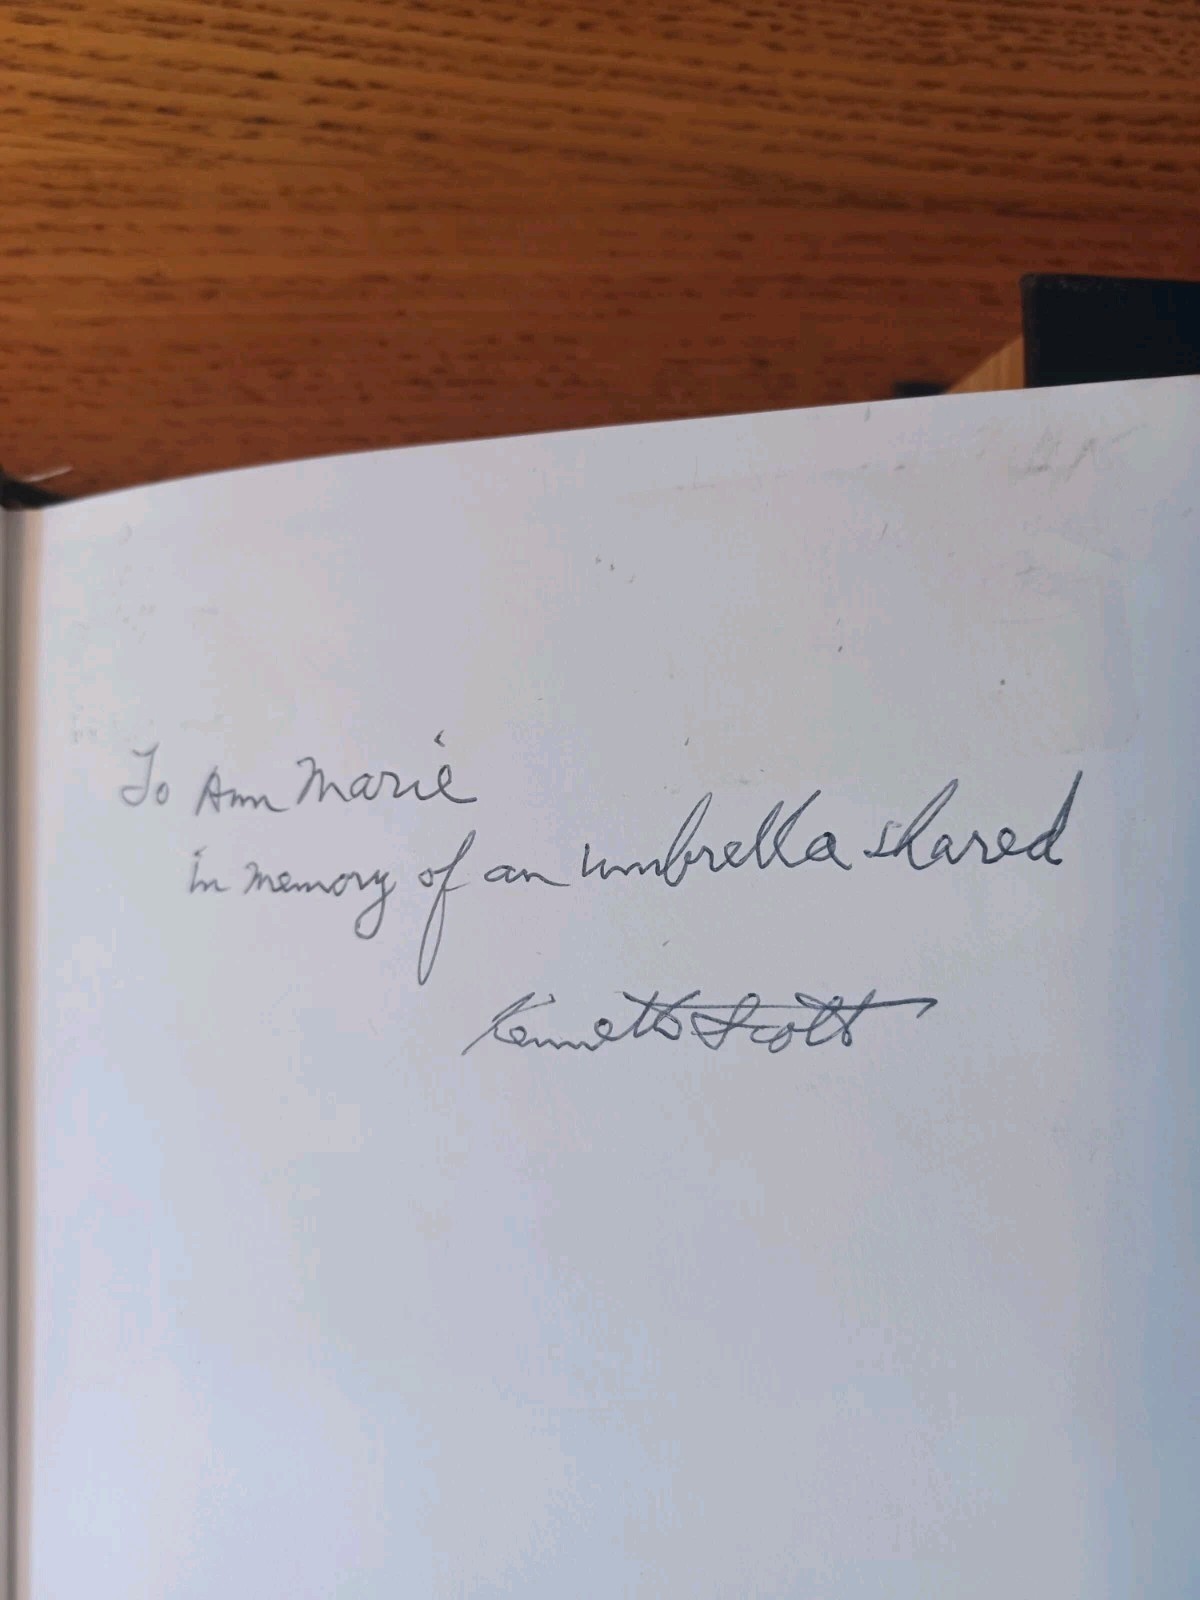 To Ann Marie
in memory of an umbrella shared
Kenneth Scott